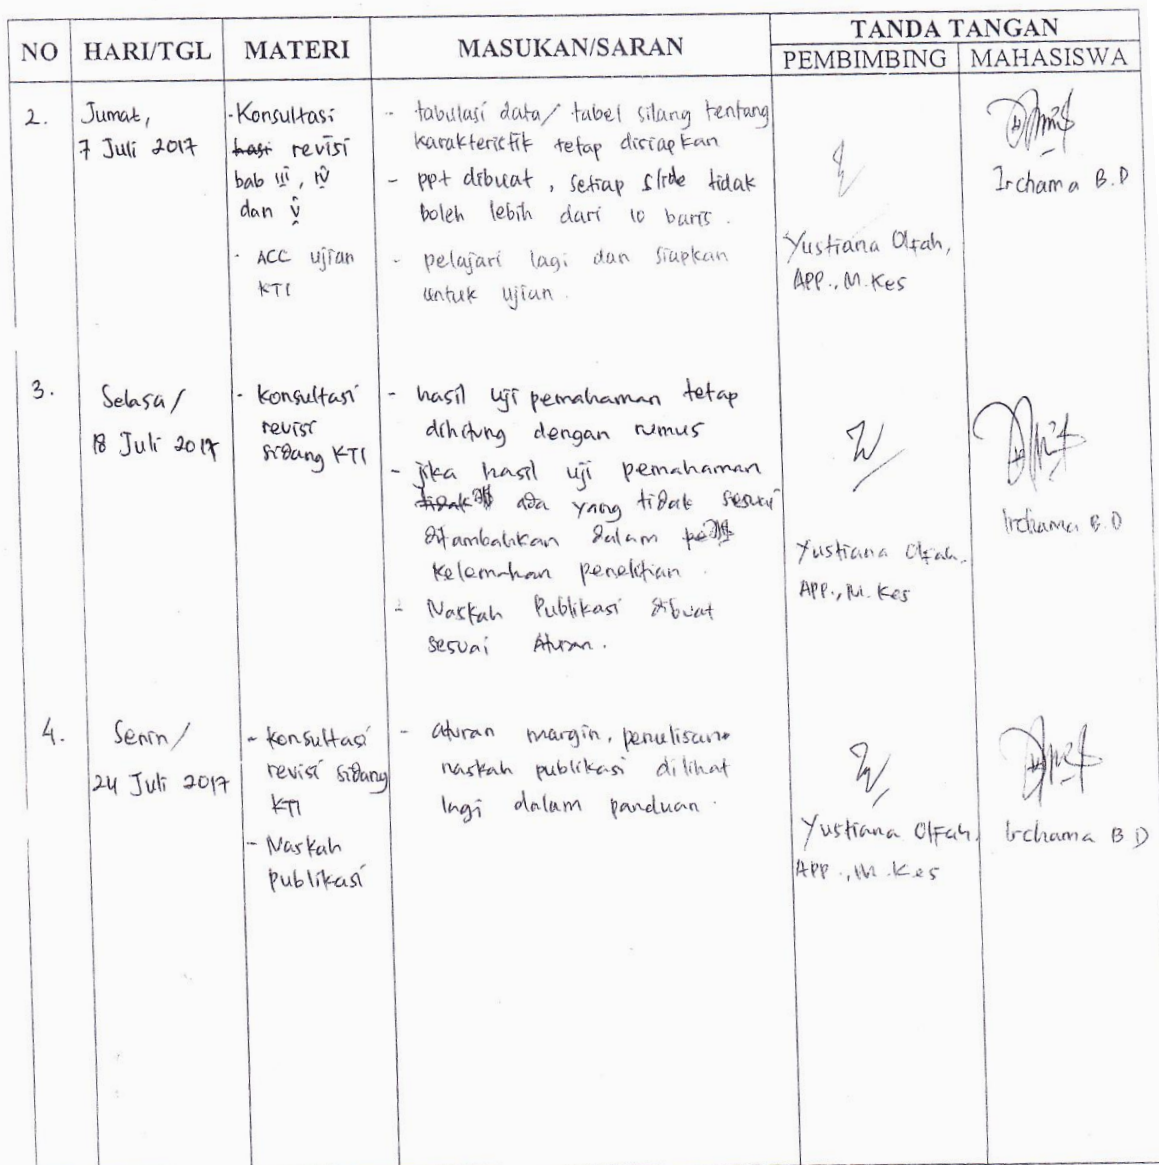 NO HARI/TGL MATERI MASUKAN/SARAN TANDA TANGAN
PEMBIMBING MAHASISWA
2.
Jumat,
7 Juli 2017
- Konsultasi
hasi revisi
bab III, IV
dan V
- ACC ujian
KTI
- tabulasi data/ tabel silang tentang
karakteristik tetap disiapkan
- ppt dibuat, setiap slide tidak
boleh lebih dari 10 baris.
- pelajari lagi dan siapkan
untuk ujian.
Yustiana Olfah,
APP., M.Kes
Irchama B.D
3.
Selasa/
18 Juli 2017
- konsultasi
revisi
sidang KTI
- hasil uji pemahaman tetap
dihitung dengan rumus
- jika hasil uji pemahaman
tidak ada yang tidak sesuai
ditambahkan dalam
kelemahan penelitian.
- Naskah Publikasi dibuat
sesuai Aturan.
Yustiana Olfah,
APP., M.Kes
Irchama B.D
4.
Senin/
24 Juli 2017
- konsultasi
revisi sidang
KTI
- Naskah
publikasi
- aturan margin, penulisan
naskah publikasi dilihat
lagi dalam panduan.
Yustiana Olfah,
APP., M.Kes
Irchama B D